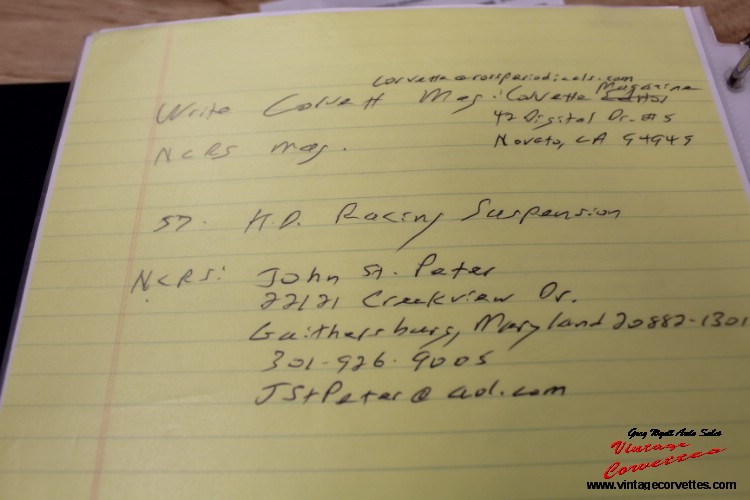 corvette@rossperiodicals.com
Write Corvett Mag: Corvette Magazine Editor
42 Digital Dr. #5
NCRS Mag.
Novato, CA 94949
57. H.D. Racing Suspension
NCRS: John St. Peter
22121 Creekview Dr.
Gaithersburg, Maryland 20882-1301
301-926-9005
JStPeter@aol.com
Greg Wyatt Auto Sales
Vintage
Corvettes
www.vintagecorvettes.com